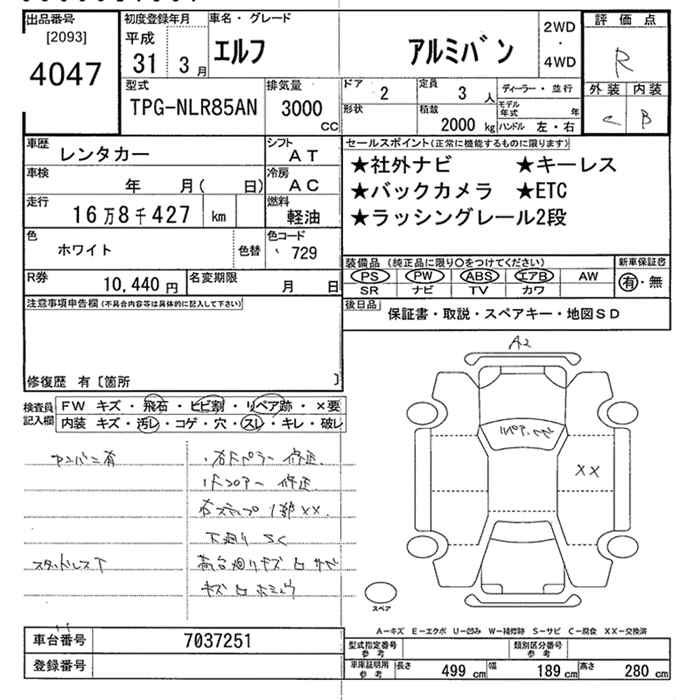 出品番号
[2093]
4047
初度登録年月
平成
31 3月
車名・グレード
エルフ アルミバン
2WD
・
4WD
評価点
R
外装 内装
C B
型式
TPG-NLR85AN
排気量
3000
cc
ドア 2
形状
定員 3 人
積載 2000 kg
ディーラー・並行
モデル年式 年
ハンドル 左・右
車歴 レンタカー
シフト AT
車検 年 月( 日)
冷房 AC
走行 16万8千427 km
燃料 軽油
色 ホワイト 色替
色コード 729
R券 10,440円
名変期限 月 日
セールスポイント(正常に機能するものに限ります)
★社外ナビ ★キーレス
★バックカメラ ★ETC
★ラッシングレール2段
装備品(純正品に限り○をつけてください)
PS PW ABS エアB AW
SR ナビ TV カワ
新車保証書
有・無
後日品
保証書・取説・スペアキー・地図SD
注意事項申告欄(不具合内容等は具体的に記入して下さい)
修復歴 有〔箇所 〕
検査員記入欄
FW キズ・飛石・ヒビ割・リペア跡・×要
内装 キズ・汚レ・コゲ・穴・スレ・キレ・破レ
修正
修正
スタッドレス
下廻り SC
A2
××
スペア
A−キズ E−エクボ U−凹み W−補修跡 S−サビ C−腐食 XX−交換済
車台番号 7037251
登録番号
型式指定番号参考
類別区分番号参考
車庫証明用参考 長さ 499 cm 幅 189 cm 高さ 280 cm